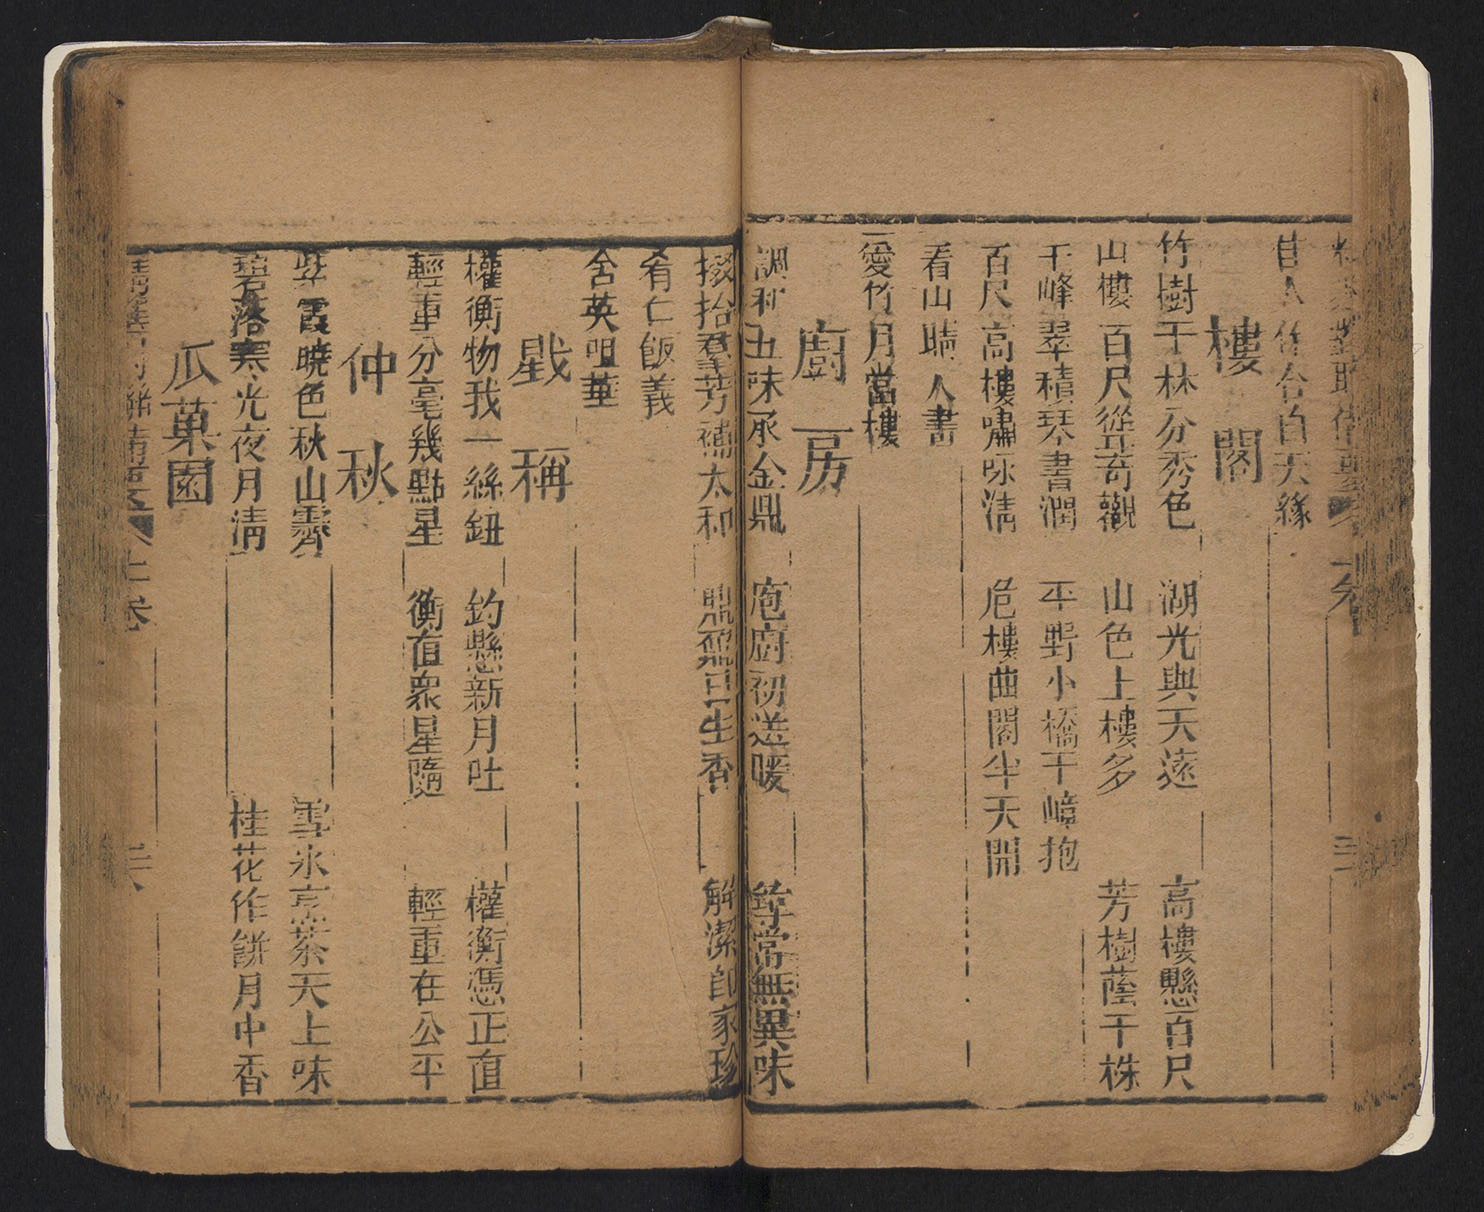 昔人 合自天緣
樓閣
竹樹千林分秀色 湖光與天遠 高樓懸百尺
山樓百尺從奇觀 山色上樓多 芳樹蔭千株
千峰翠積琴書潤 平野小橋千嶂抱
百尺高樓嘯咏清 危樓曲閣半天開
看山晴人畵
愛竹月當樓
廚房
調和五味承金鼎 庖廚初送暖 尋常無異味
掇拾羣芳補太和 鼎鼐日生香 解潔即家珍
肴仁飯義
含英咀華
戥稱
權衡物我一絲鈕 鈎懸新月吐 權衡憑正直
輕重分毫幾點星 衡直衆星隨 輕重在公平
仲秋
紫霞曉色秋山霽 雪水烹茶天上味
碧落寒光夜月清 桂花作餅月中香
瓜菓園
上卷